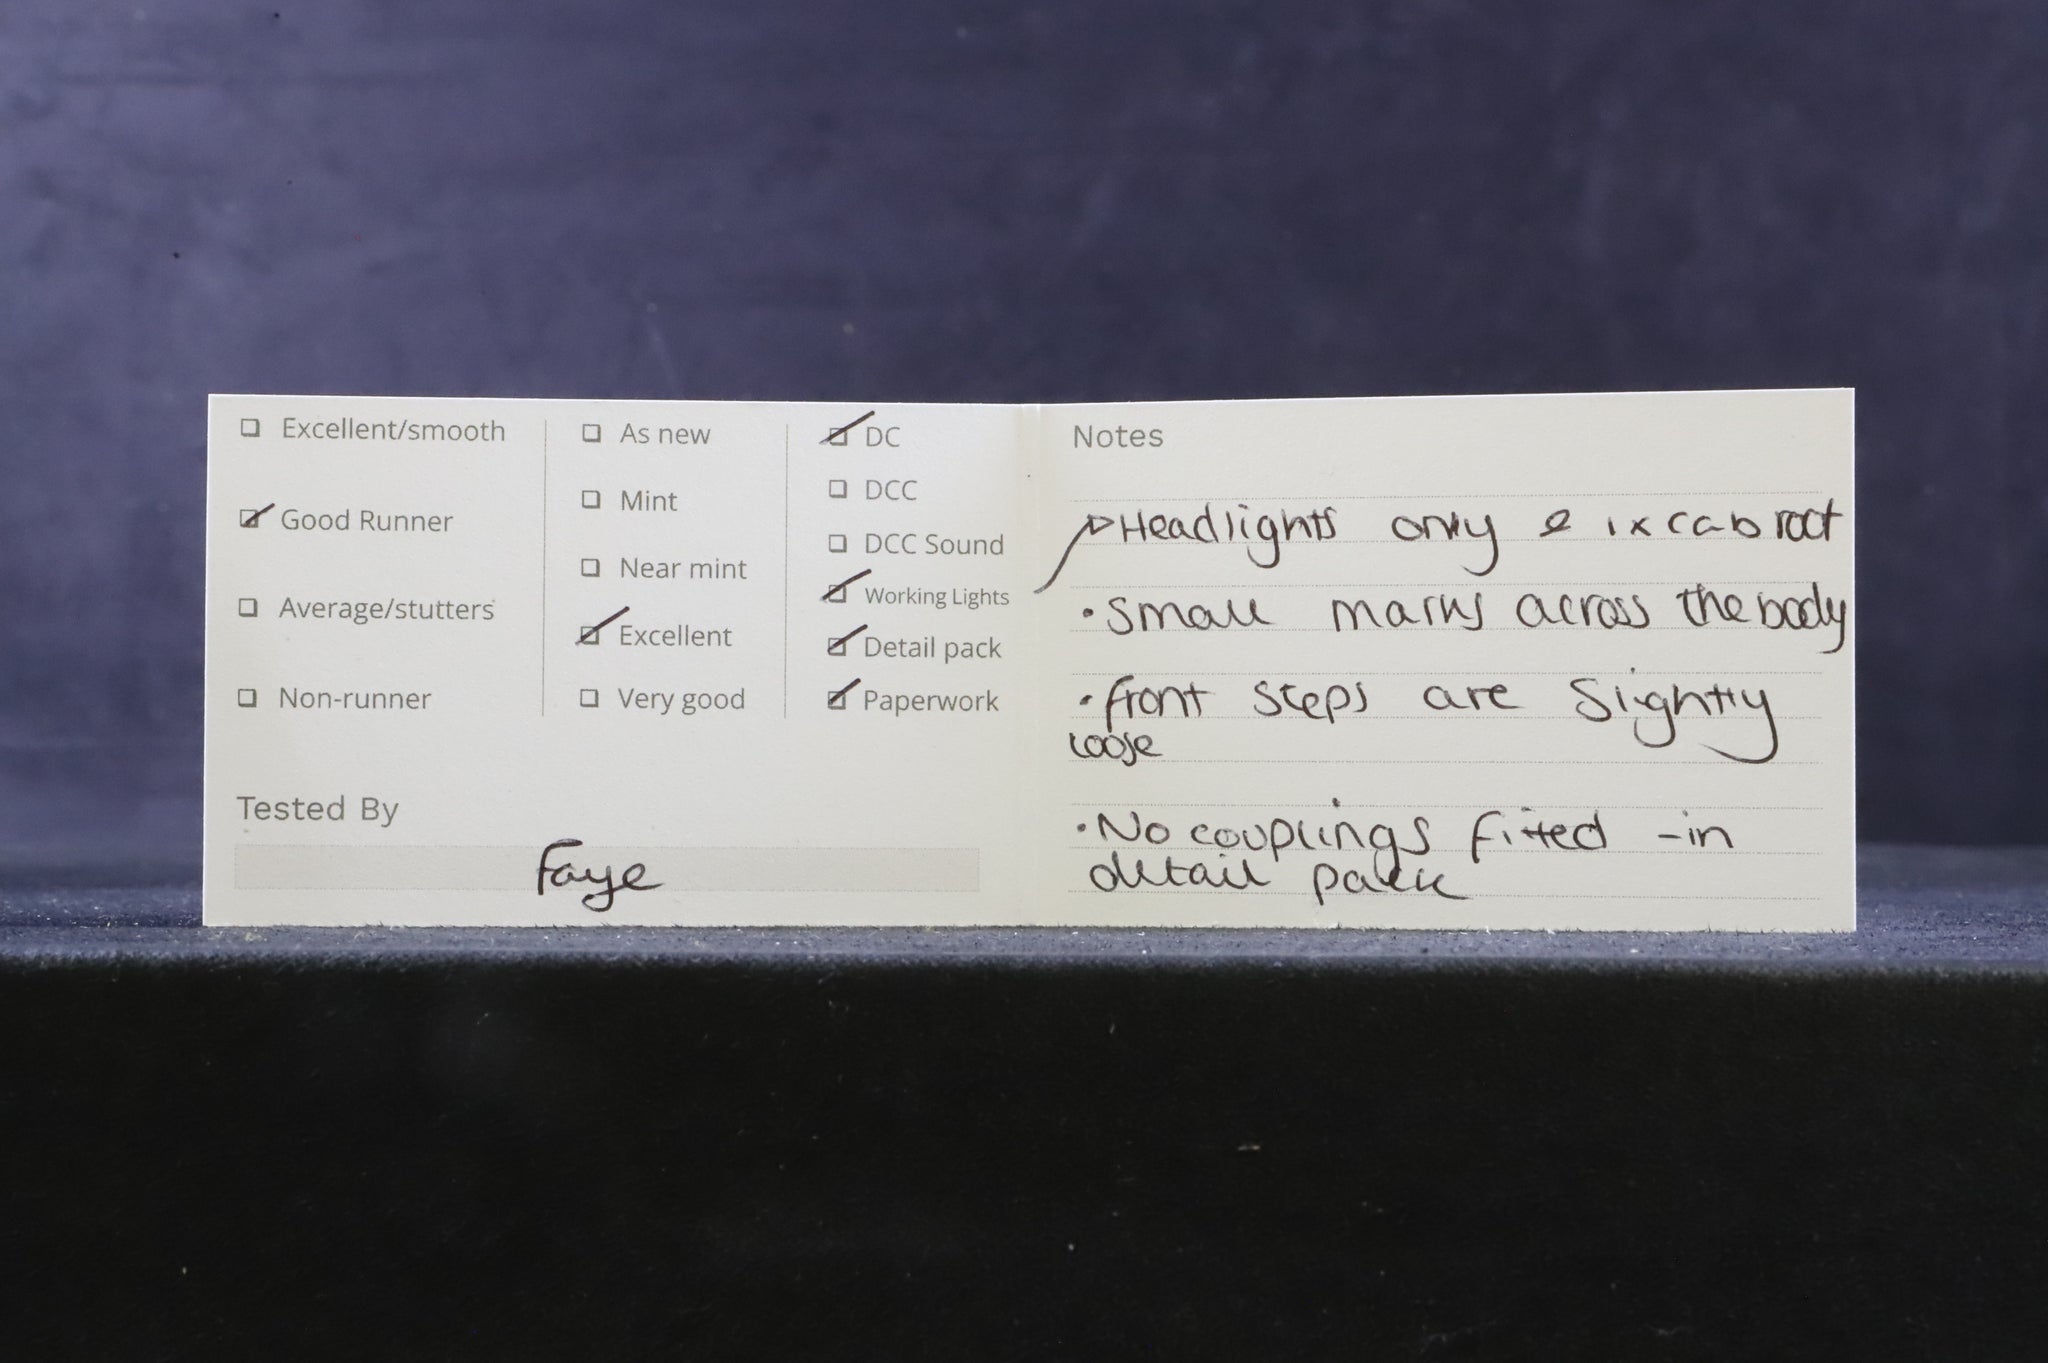 Excellent/smooth
Good Runner
Average/stutters
Non-runner
As new
Mint
Near mint
Excellent
Very good
DC
DCC
DCC Sound
Working Lights
Detail pack
Paperwork
Tested By
Faye
Notes
Headlights only & 1x cab
• Small marks across the body
• front steps are slightly
loose
• No couplings fitted - in
detail pack